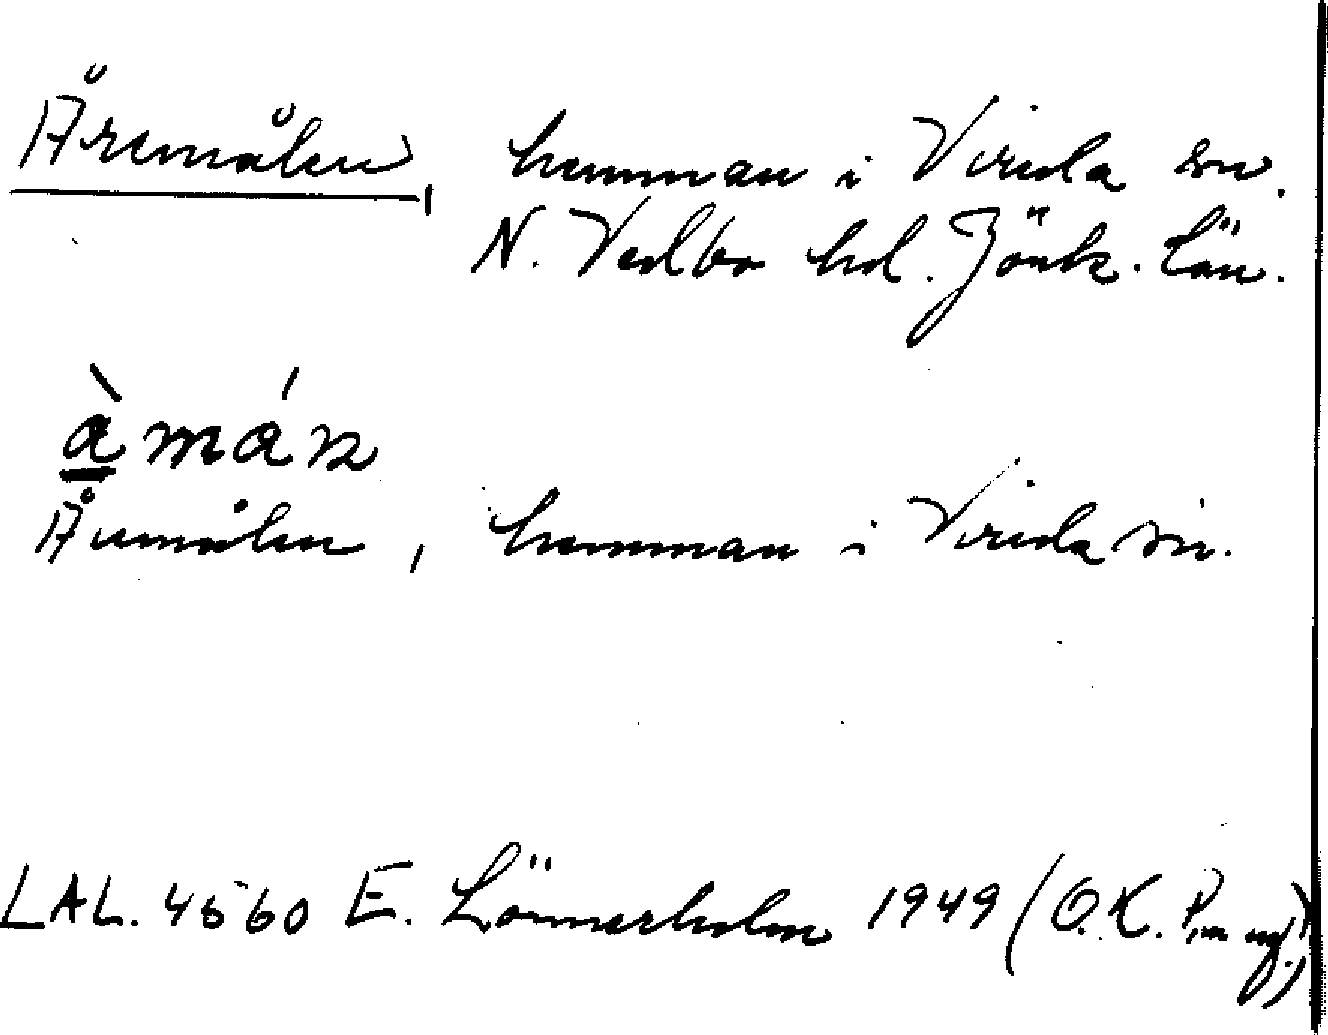 Åremålen, hemman i Vireda sn.
N. Vedbo hd. Jönk. Län.
àmán
Åremålen, hemman i Vireda sn.
LAL. 4560 E. Lönnerholm 1949 (O.K.